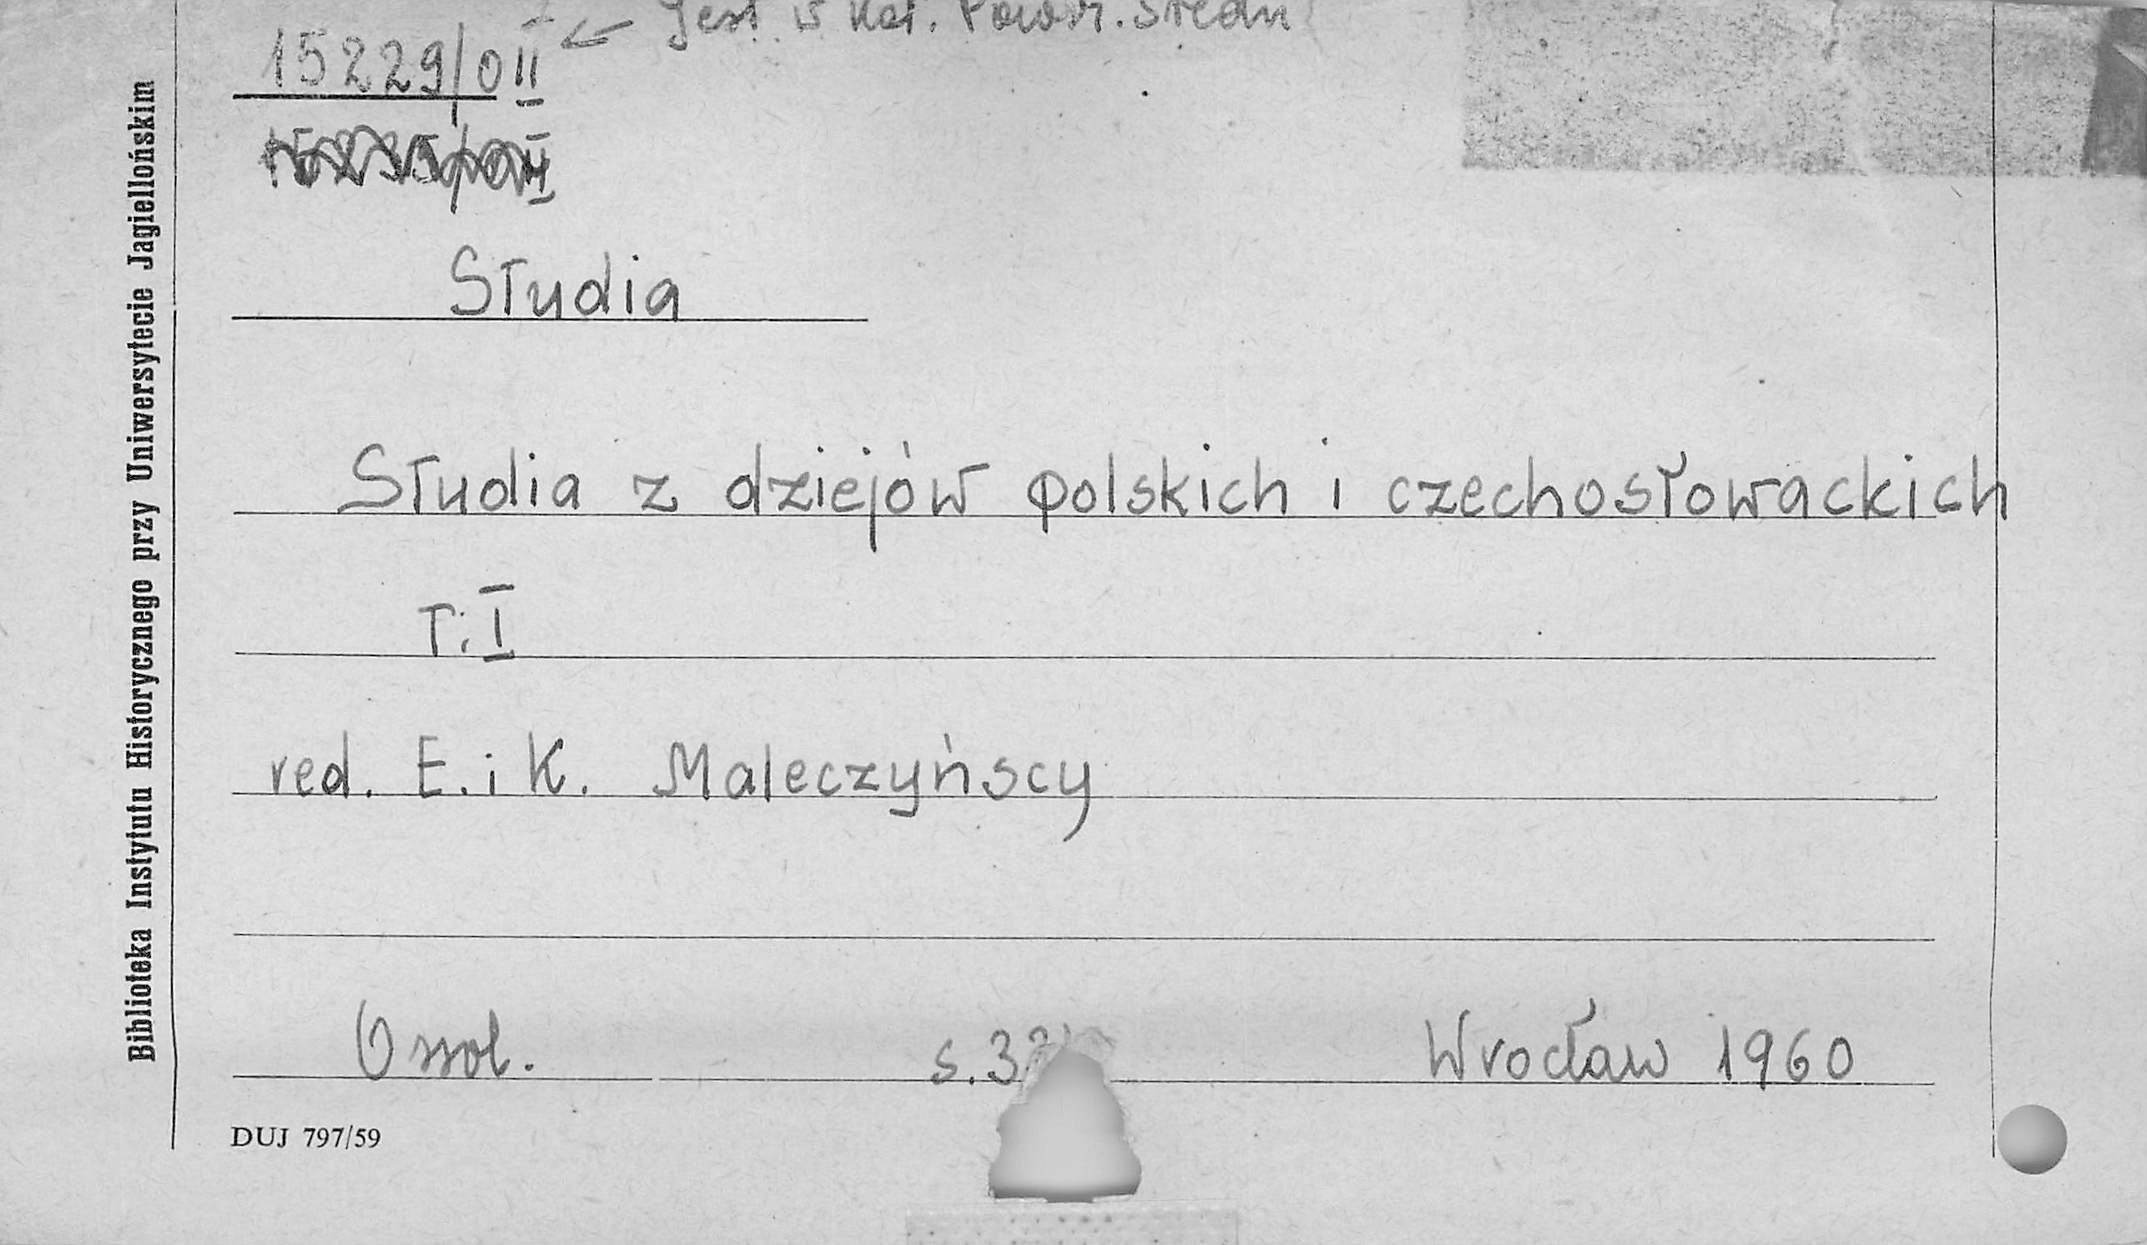 Jest w Kat. Powsz. Średn
15229/0 II
Studia
Studia z dziejów polskich i czechosłowackich
T. I
red. E. i K. Maleczyńscy
Ossol. s. 3 Wrocław 1960
DUJ 797/59
Biblioteka Instytutu Historycznego przy Uniwersytecie Jagiellońskim